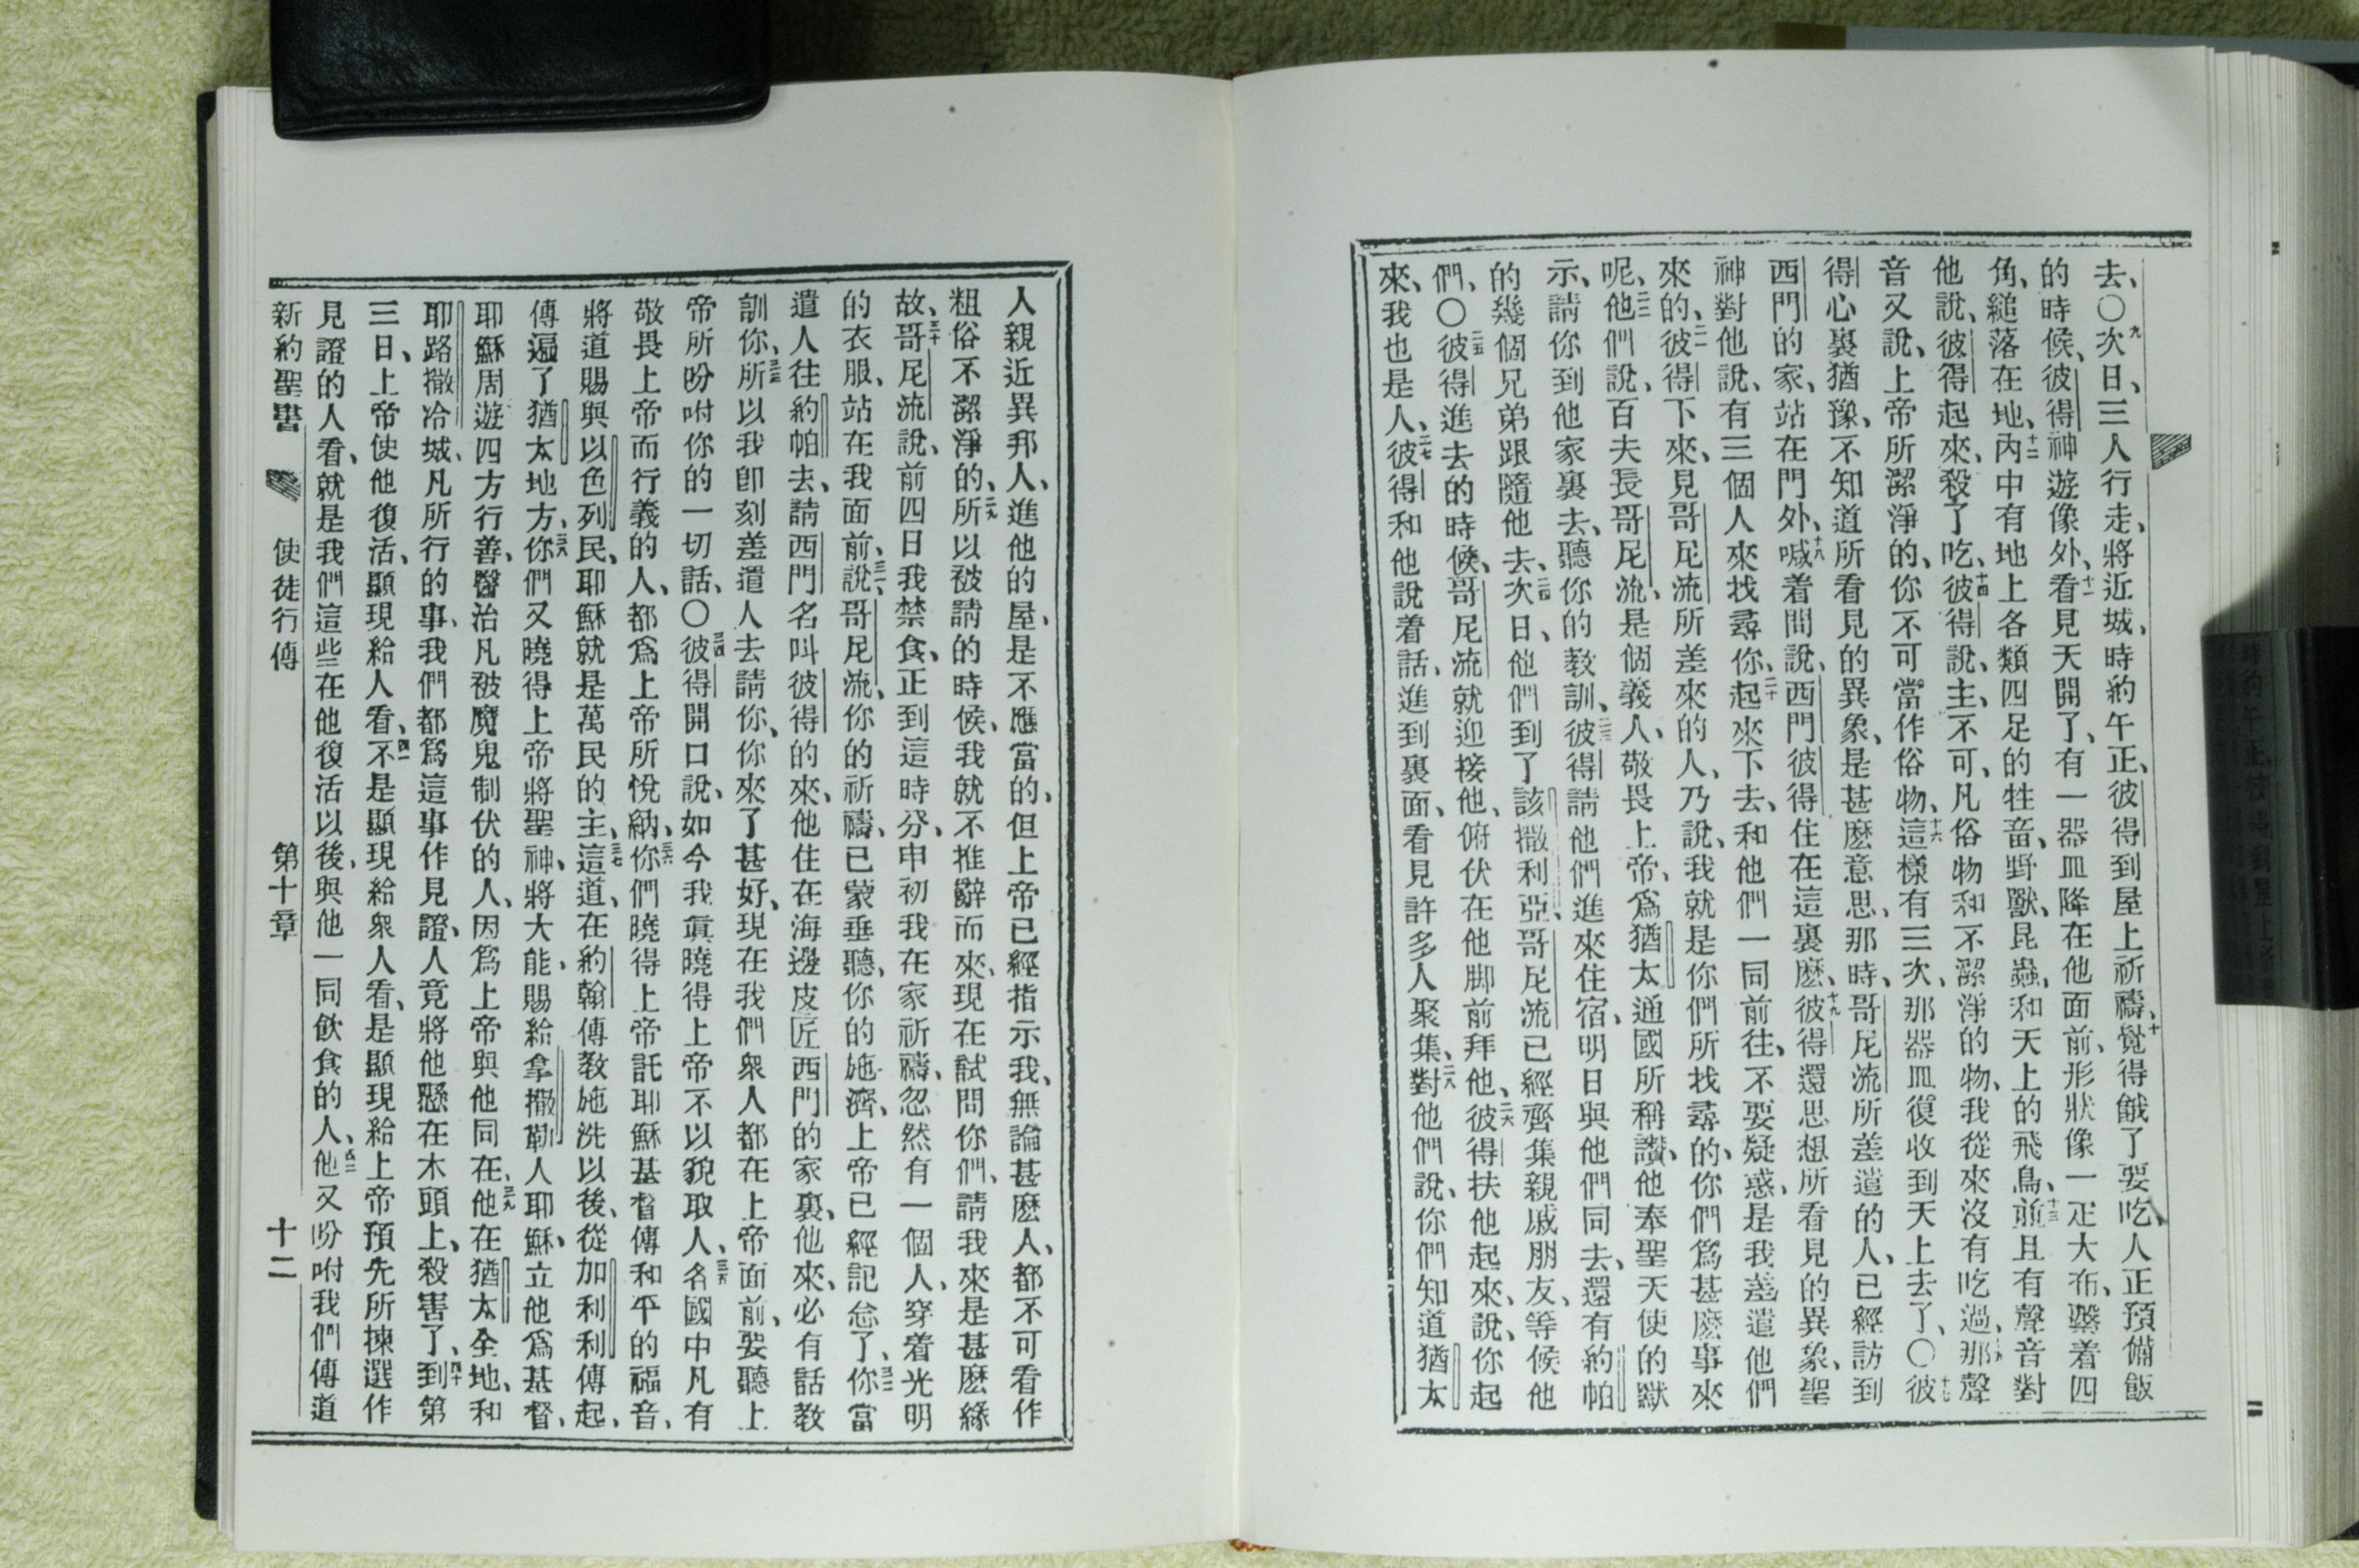 去、○九次日、三人行走、將近城、時約午正、彼得到屋上祈禱、十覺得餓了要吃、人正預備飯
的時候、彼得神遊像外、十一看見天開了、有一器皿降在他面前、形狀像一疋大布、繫着四
角、縋落在地、十二內中有地上各類四足的牲畜、野獸、昆蟲、和天上的飛鳥、十三前且有聲音對
他說、彼得起來、殺了吃、十四彼得說、主、不可、凡俗物和不潔淨的物、我從來沒有吃過、那聲
音又說、上帝所潔淨的、你不可當作俗物、十六這樣有三次、那器皿復收到天上去了、○十七彼
得心裏猶豫、不知道所看見的異象、是甚麽意思、那時、哥尼流所差遣的人、已經訪到
西門的家、站在門外、十八喊着問說、西門彼得住在這裏麽、十九彼得還思想所看見的異象、聖
神對他說、有三個人來找尋你、二十起來下去、和他們一同前往、不要疑惑、是我差遣他們
來的、二一彼得下來、見哥尼流所差來的人、乃說、我就是你們所找尋的、你們爲甚麽事來
呢、二二他們說、百夫長哥尼流、是個義人、敬畏上帝、爲猶太通國所稱讚、他奉聖天使的默
示、請你到他家裏去、聽你的教訓、二三彼得請他們進來住宿、明日與他們同去、還有約帕
的幾個兄弟跟隨他去、二四次日、他們到了該撒利亞、哥尼流已經齊集親戚朋友、等候他
們、○二五彼得進去的時候、哥尼流就迎接他、俯伏在他脚前拜他、二六彼得扶他起來、說、你起
來、我也是人、二七彼得和他說着話、進到裏面、看見許多人聚集、二八對他們說、你們知道猶太
人親近異邦人、進他的屋、是不應當的、但上帝已經指示我、無論甚麽人、都不可看作
粗俗不潔淨的、二九所以被請的時候、我就不推辭而來、現在試問你們、請我來是甚麽緣
故、三十哥尼流說、前四日我禁食、正到這時分、申初我在家祈禱、忽然有一個人、穿着光明
的衣服、站在我面前、三一說、哥尼流、你的祈禱、已蒙垂聽、你的施濟、上帝已經記念了、三二你當
遣人往約帕去、請西門名叫彼得的來、他住在海邊皮匠西門的家裏、他來、必有話教
訓你、三三所以我卽刻差遣人去請你、你來了甚好、現在我們衆人都在上帝面前、要聽上
帝所吩咐你的一切話、○三四彼得開口說、如今我眞曉得上帝不以貌取人、三五名國中凡有
敬畏上帝而行義的人、都爲上帝所悅納、三六你們曉得上帝託耶穌基督傳和平的福音、
將道賜與以色列民、耶穌就是萬民的主、三七這道、在約翰傳教施洗以後、從加利利傳起、
傳遍了猶太地方、三八你們又曉得上帝將聖神、將大能、賜給拿撒勒人耶穌、立他爲基督、
耶穌周遊四方行善、醫治凡被魔鬼制伏的人、因爲上帝與他同在、三九他在猶太全地、和
耶路撒冷城、凡所行的事、我們都爲這事作見證、人竟將他懸在木頭上、殺害了、四十到第
三日、上帝使他復活、顯現給人看、四一不是顯現給衆人看、是顯現給上帝預先所揀選作
見證的人看、就是我們這些在他復活以後、與他一同飲食的人、四二他又吩咐我們傳道
新約聖書 使徒行傳 第十章 十二